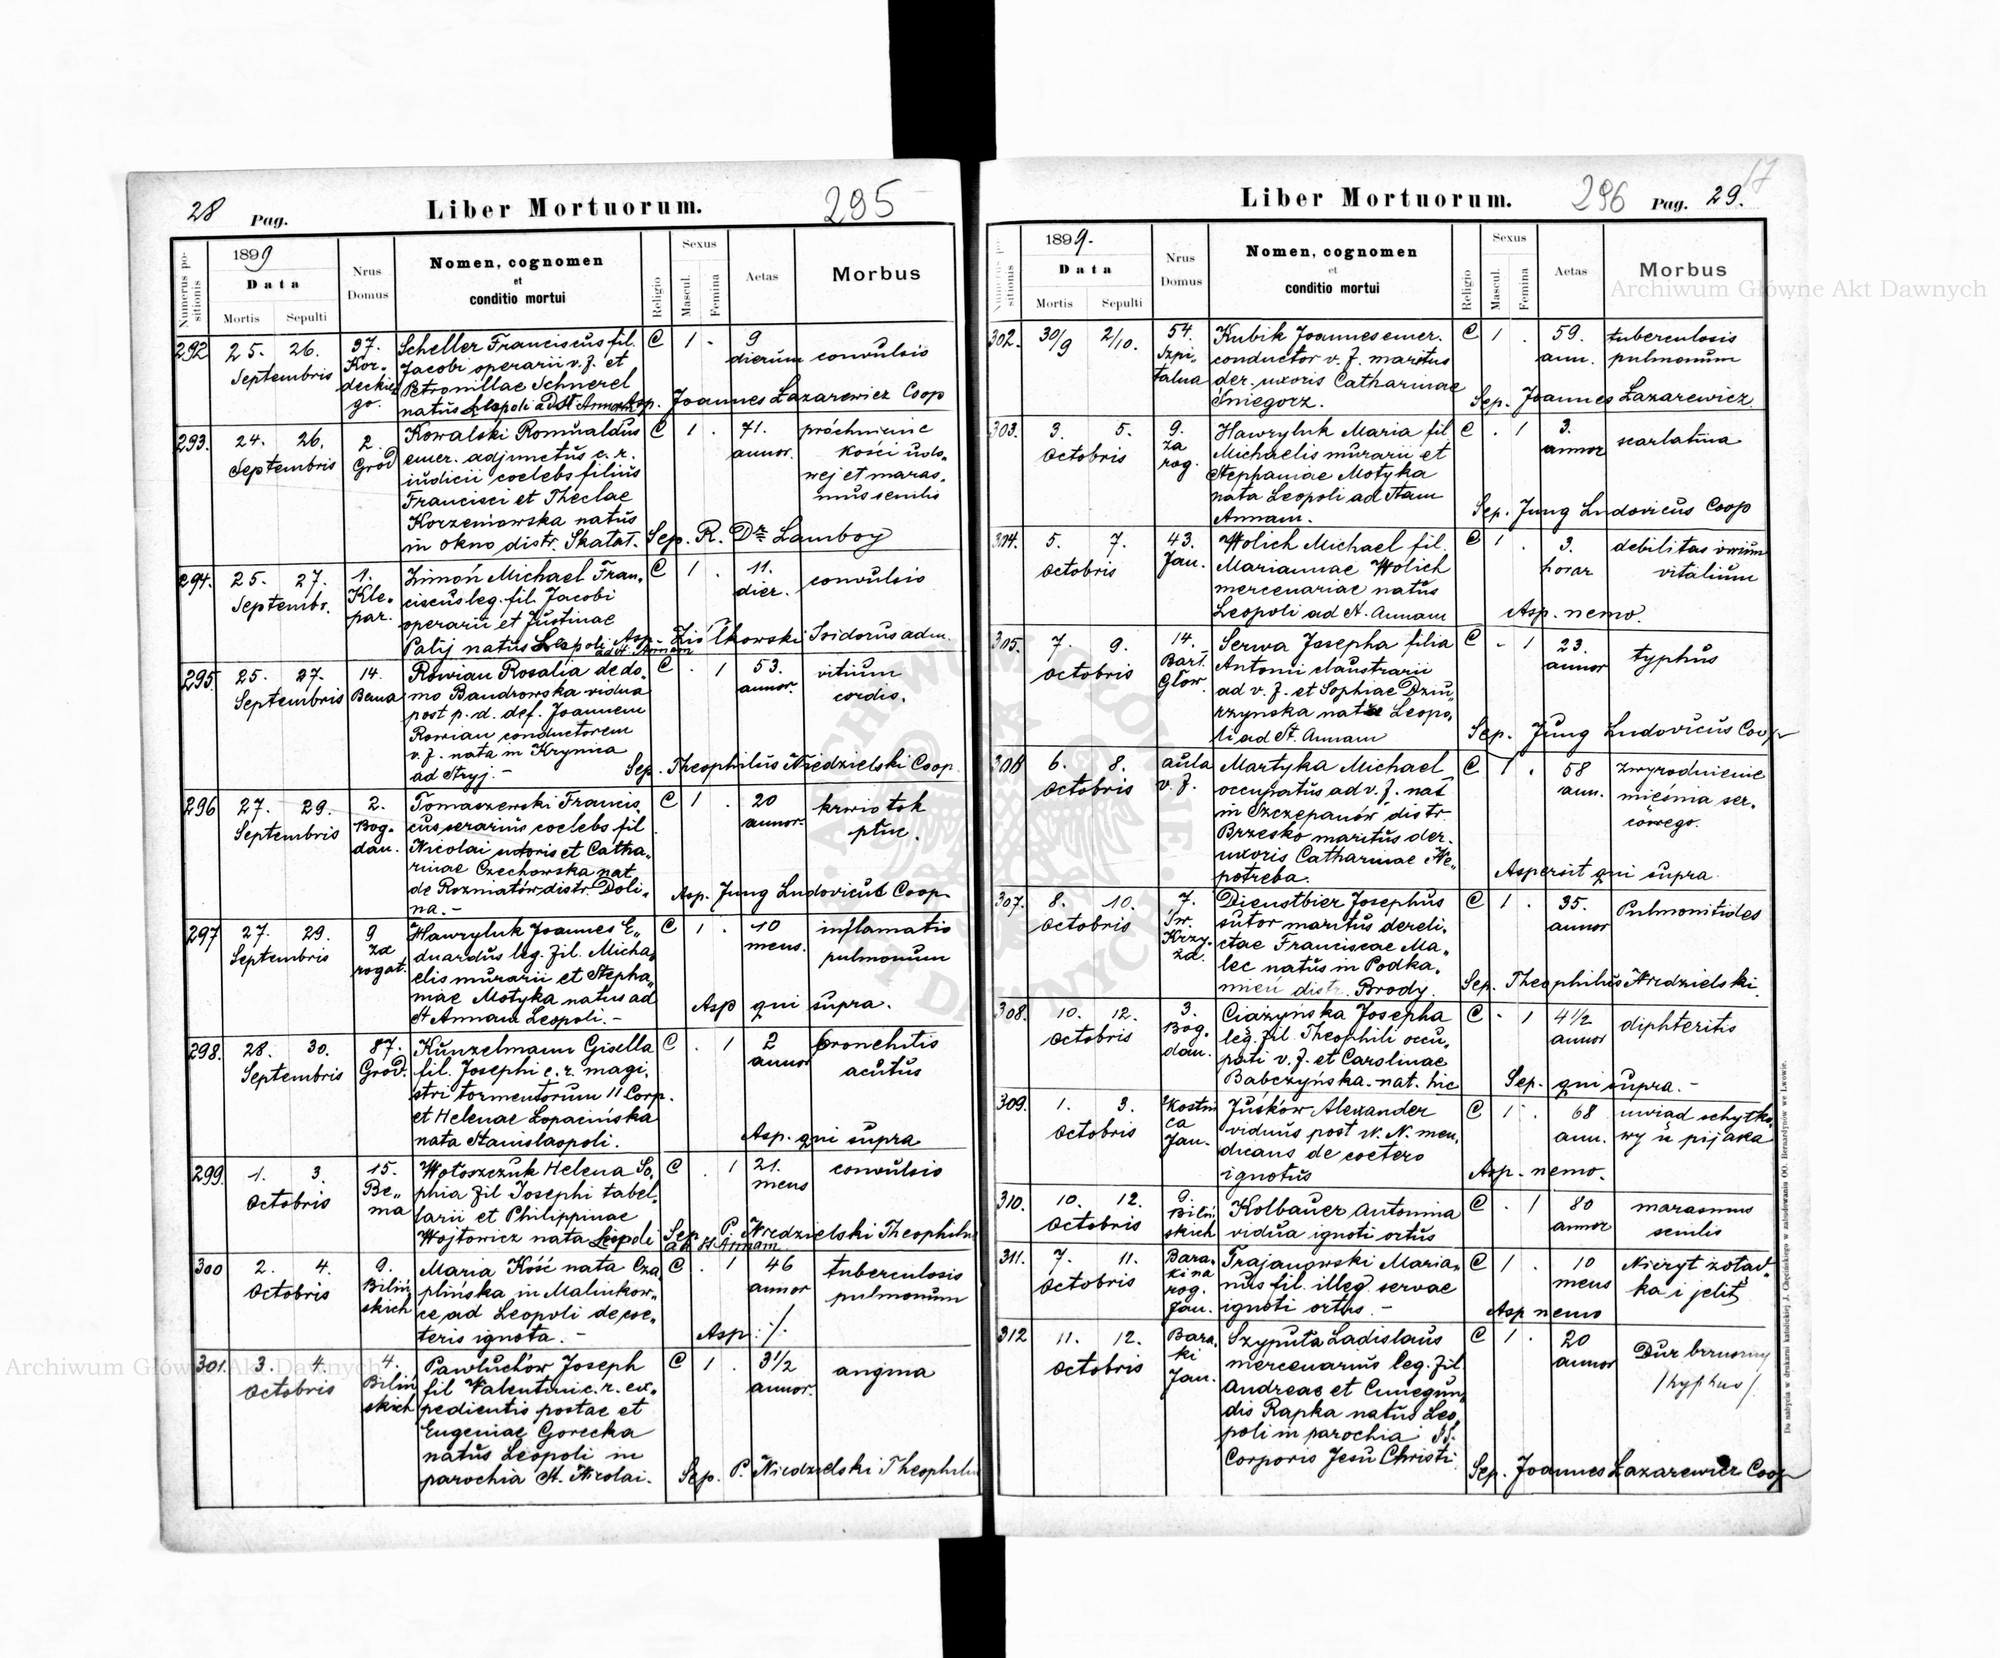 28 Pag. Liber Mortuorum. 295
Numerus positionis
1899
Data
Mortis Sepulti
Nrus Domus
Nomen, cognomen
et
conditio mortui
Religio
Sexus
Mascul. Femina
Aetas
Morbus
292 25. 26. Septembris 37. Kordeckiego. C 1 . 9 dierum convulsio
Scheller Franciscus fil.
Jacobi operarii v. f. et
Petronillae Schnerel
natus Leopoli ad St Annam
Asp. Joannes Lazarewicz Coop
293. 24. 26. Septembris 2. Gród C 1 . 71. annor.
Kowalski Romualdus
emer. adjunctus c. r.
iudicii coelebs filius
Francisci et Theclae
Korzeniowska natus
in Okno distr. Skałat.
próchnienie
kości udo-
wej et maras-
mus senilis
Sep. R. Dr Lamboy
294. 25. 27. Septembr. 1. Klepar. C 1 . 11. dier. convulsio
Zimoń Michael Fran-
ciscus leg. fil. Jacobi
operarii et Justinae
Palij natus Leopoli ad St. Annam
Asp. Ziółkowski Isidorus adm.
295. 25. 27. Septembris 14. Bema C . 1 53. annor. vitium cordis.
Rowian Rosalia de do-
mo Bandrowska vidua
post p. d. def. Joannem
Rowian conductorem
v. f. nata in Krynica
ad Stryj. -
Sep. Theophilus Niedzielski Coop.
296 27. 29. Septembris 2. Bogdan. C 1 . 20 annor. krwiotok płuc.
Tomaszewski Francis
cus serarius coelebs fil
Nicolai sutoris et Catha-
rinae Czechowska nat
de Rozniatów distr. Doli-
na. -
Asp. Jung Ludovicus Coop
297 27. 29. Septembris 9 Za rogat. C 1 . 10 mens. inflamatio pulmonum
Hawryluk Joannes E-
duardus leg. fil. Micha
elis murarii et Stepha-
niae Motyka natus ad
St Annam Leopoli. -
Asp qui supra.
298. 28. 30. Septembris 87. Gród. C . 1 2 annor bronchitis acutus
Kunzelmann Gisella
fil. Josephi c. r. magi-
stri tormentorum 11 Corp.
et Helenae Łopacińska
nata Stanislaopoli.
Asp. qui supra
299. 1. 3. Octobris 15. Bema C . 1 21. mens convulsio
Wołoszczuk Helena So-
phia fil Josephi tabel-
larii et Philippinae
Wojtowicz nata Leopoli ad St Annam
Sep P. Niedzielski Theophilus
300 2. 4. Octobris 9. Bilińskich C . 1 46 annor tuberculosis pulmonum
Maria Kość nata Cza
plińska in Malinkow-
ce ad Leopoli de coe-
teris ignota. -
Asp ·/·
301. 3. 4. Octobris 4. Bilińskich C 1 . 3½ annor. angina
Pawluchów Joseph
fil Valentini c. r. ex-
pedientis postae et
Eugeniae Gorecka
natus Leopoli in
parochia St. Nicolai.
Sep. P. Niedzielski Theophilus
Liber Mortuorum. 296 Pag. 29. 17
Numerus positionis
1899.
Data
Mortis Sepulti
Nrus Domus
Nomen, cognomen
et
conditio mortui
Religio
Sexus
Mascul. Femina
Aetas
Morbus
302. 30/9 2/10. 54. Szpitalna C 1 . 59. ann. tuberculosis pulmonum
Kubik Joannes emer.
conductor v. f. maritus
der. uxoris Catharinae
Śniegorz.
Sep. Joannes Lazarewicz
303. 3. 5. Octobris 9. za rog. C . 1 3. annor scarlatina
Hawryluk Maria fil
Michaelis murarii et
Stephaniae Motyka
nata Leopoli ad Stam
Annam.
Sep. Jung Ludovicus Coop
304. 5. 7. Octobris 43. Jan. C 1 . 3. horar debilitas virium vitalium
Wolich Michael fil.
Mariannae Wolich
mercenariae natus
Leopoli ad St. Annam
Asp. nemo.
305. 7. 9. Octobris 14. Bart. Głow. C - 1 23. annor typhus
Serwa Josepha filia
Antonii claustrarii
ad v. f. et Sophiae Dziu-
rzynska nata Leopo-
li ad St. Annam
Sep. Jung Ludovicus Coop
306 6. 8. Octobris aula v. f. C 1 . 58 ann.
Martyka Michael
occupatus ad v. f. nat
in Szczepanów distr.
Brzesko maritus der.
uxoris Catharinae Ne-
potreba.
zwyrodnienie
mięśnia ser-
cowego.
Aspersit qui supra.
307. 8. 10. Octobris 7. Św. Krzyża. C 1 . 35. annor Pulmonitides
Dienstbier Josephus
sutor maritus dereli-
ctae Franciscae Ma-
lec natus in Podka-
mień distr. Brody.
Sep. Theophilus Niedzielski
308. 10. 12. Octobris 3. Bogdan. C - 1 4½ annor diphteritis
Ciążyńska Josepha
leg. fil Theophili occu-
pati v. f. et Carolinae
Babczyńska. nat. hic
Sep. qui supra. -
309. 1. 3. Octobris Kostnica Jan. C 1 . 68 ann. uwiąd schyłkowy u pijaka
Juśków Alexander
viduus post N. N. men-
dicans de coetero
ignotus
Asp. nemo.
310. 10. 12. Octobris 9. Bilińskich C . 1 80 annor marasmus senilis
Kolbauer Antonina
vidua ignoti ortus
311. 7. 11. Octobris Baraki na rog. Jan. C 1 . 10 mens Nieżyt żołądka i jelit
Trajanowski Maria-
nus fil. illeg. servae
ignoti ortus. -
Asp nemo
312 11. 12. Octobris Baraki Jan. C 1 . 20 annor Dur brzuszny /typhus/
Szyputa Ladislaus
mercenarius leg. fil
Andreae et Cunegun-
dis Rapka natus Leo-
poli in parochia SS.
Corporis Jesu Christi
Sep. Joannes Lazarewicz Coop
Do nabycia w drukarni katolickiej J. Chęcińskiego w zabudowaniu OO. Bernardynów we Lwowie.
Archiwum Główne Akt Dawnych
Archiwum Główne Akt Dawnych
ARCHIWUM GŁÓWNE AKT DAWNYCH